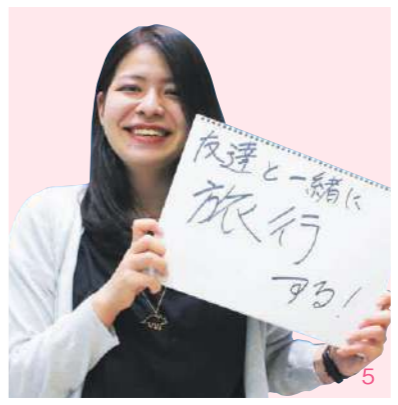 友達と一緒に
旅行
する!
5